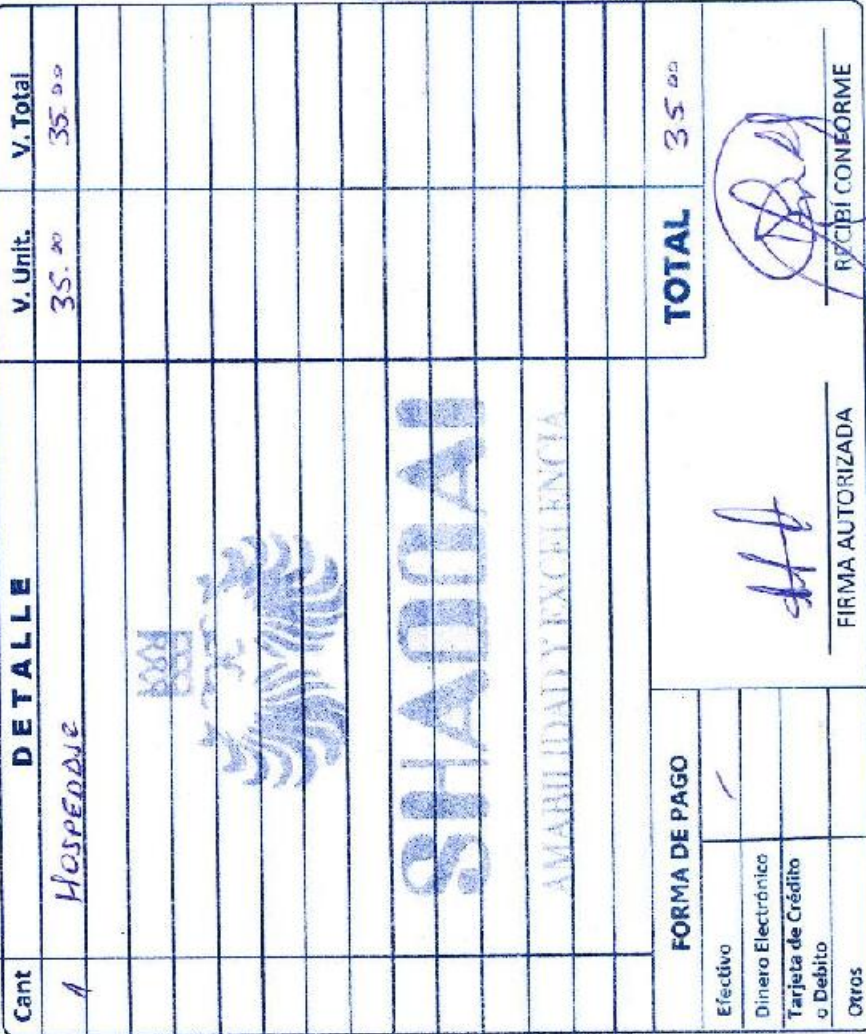 Cant DETALLE V. Unit. V. Total
1 HOSPEDAJE 35.00 35.00
SHADDAI
AMABILIDAD Y EXCELENCIA
TOTAL 35 00
FORMA DE PAGO
Efectivo /
Dinero Electrónico
Tarjeta de Crédito
o Debito
Otros
FIRMA AUTORIZADA
RECIBÍ CONFORME